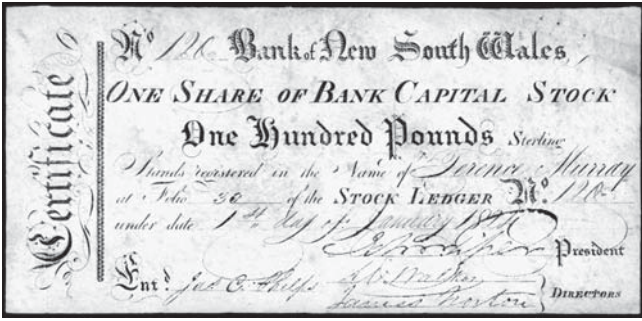 Certificate
No. 120 Bank of New South Wales,
ONE SHARE OF BANK CAPITAL STOCK
One Hundred Pounds Sterling
Stands registered in the Name of Terence Murray
at Folio 30 of the STOCK LEDGER No. 120
under date 1st day of January
President
Ent.d Jas. C. Phelps
James Norton DIRECTORS